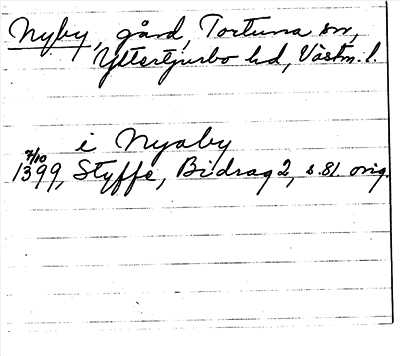 Nyby, gård, Tortuna sn,
Yttertjurbo hd, Västm. l.
i Nyaby
7/10
1399, Styffe, Bidrag 2, s. 81. orig.